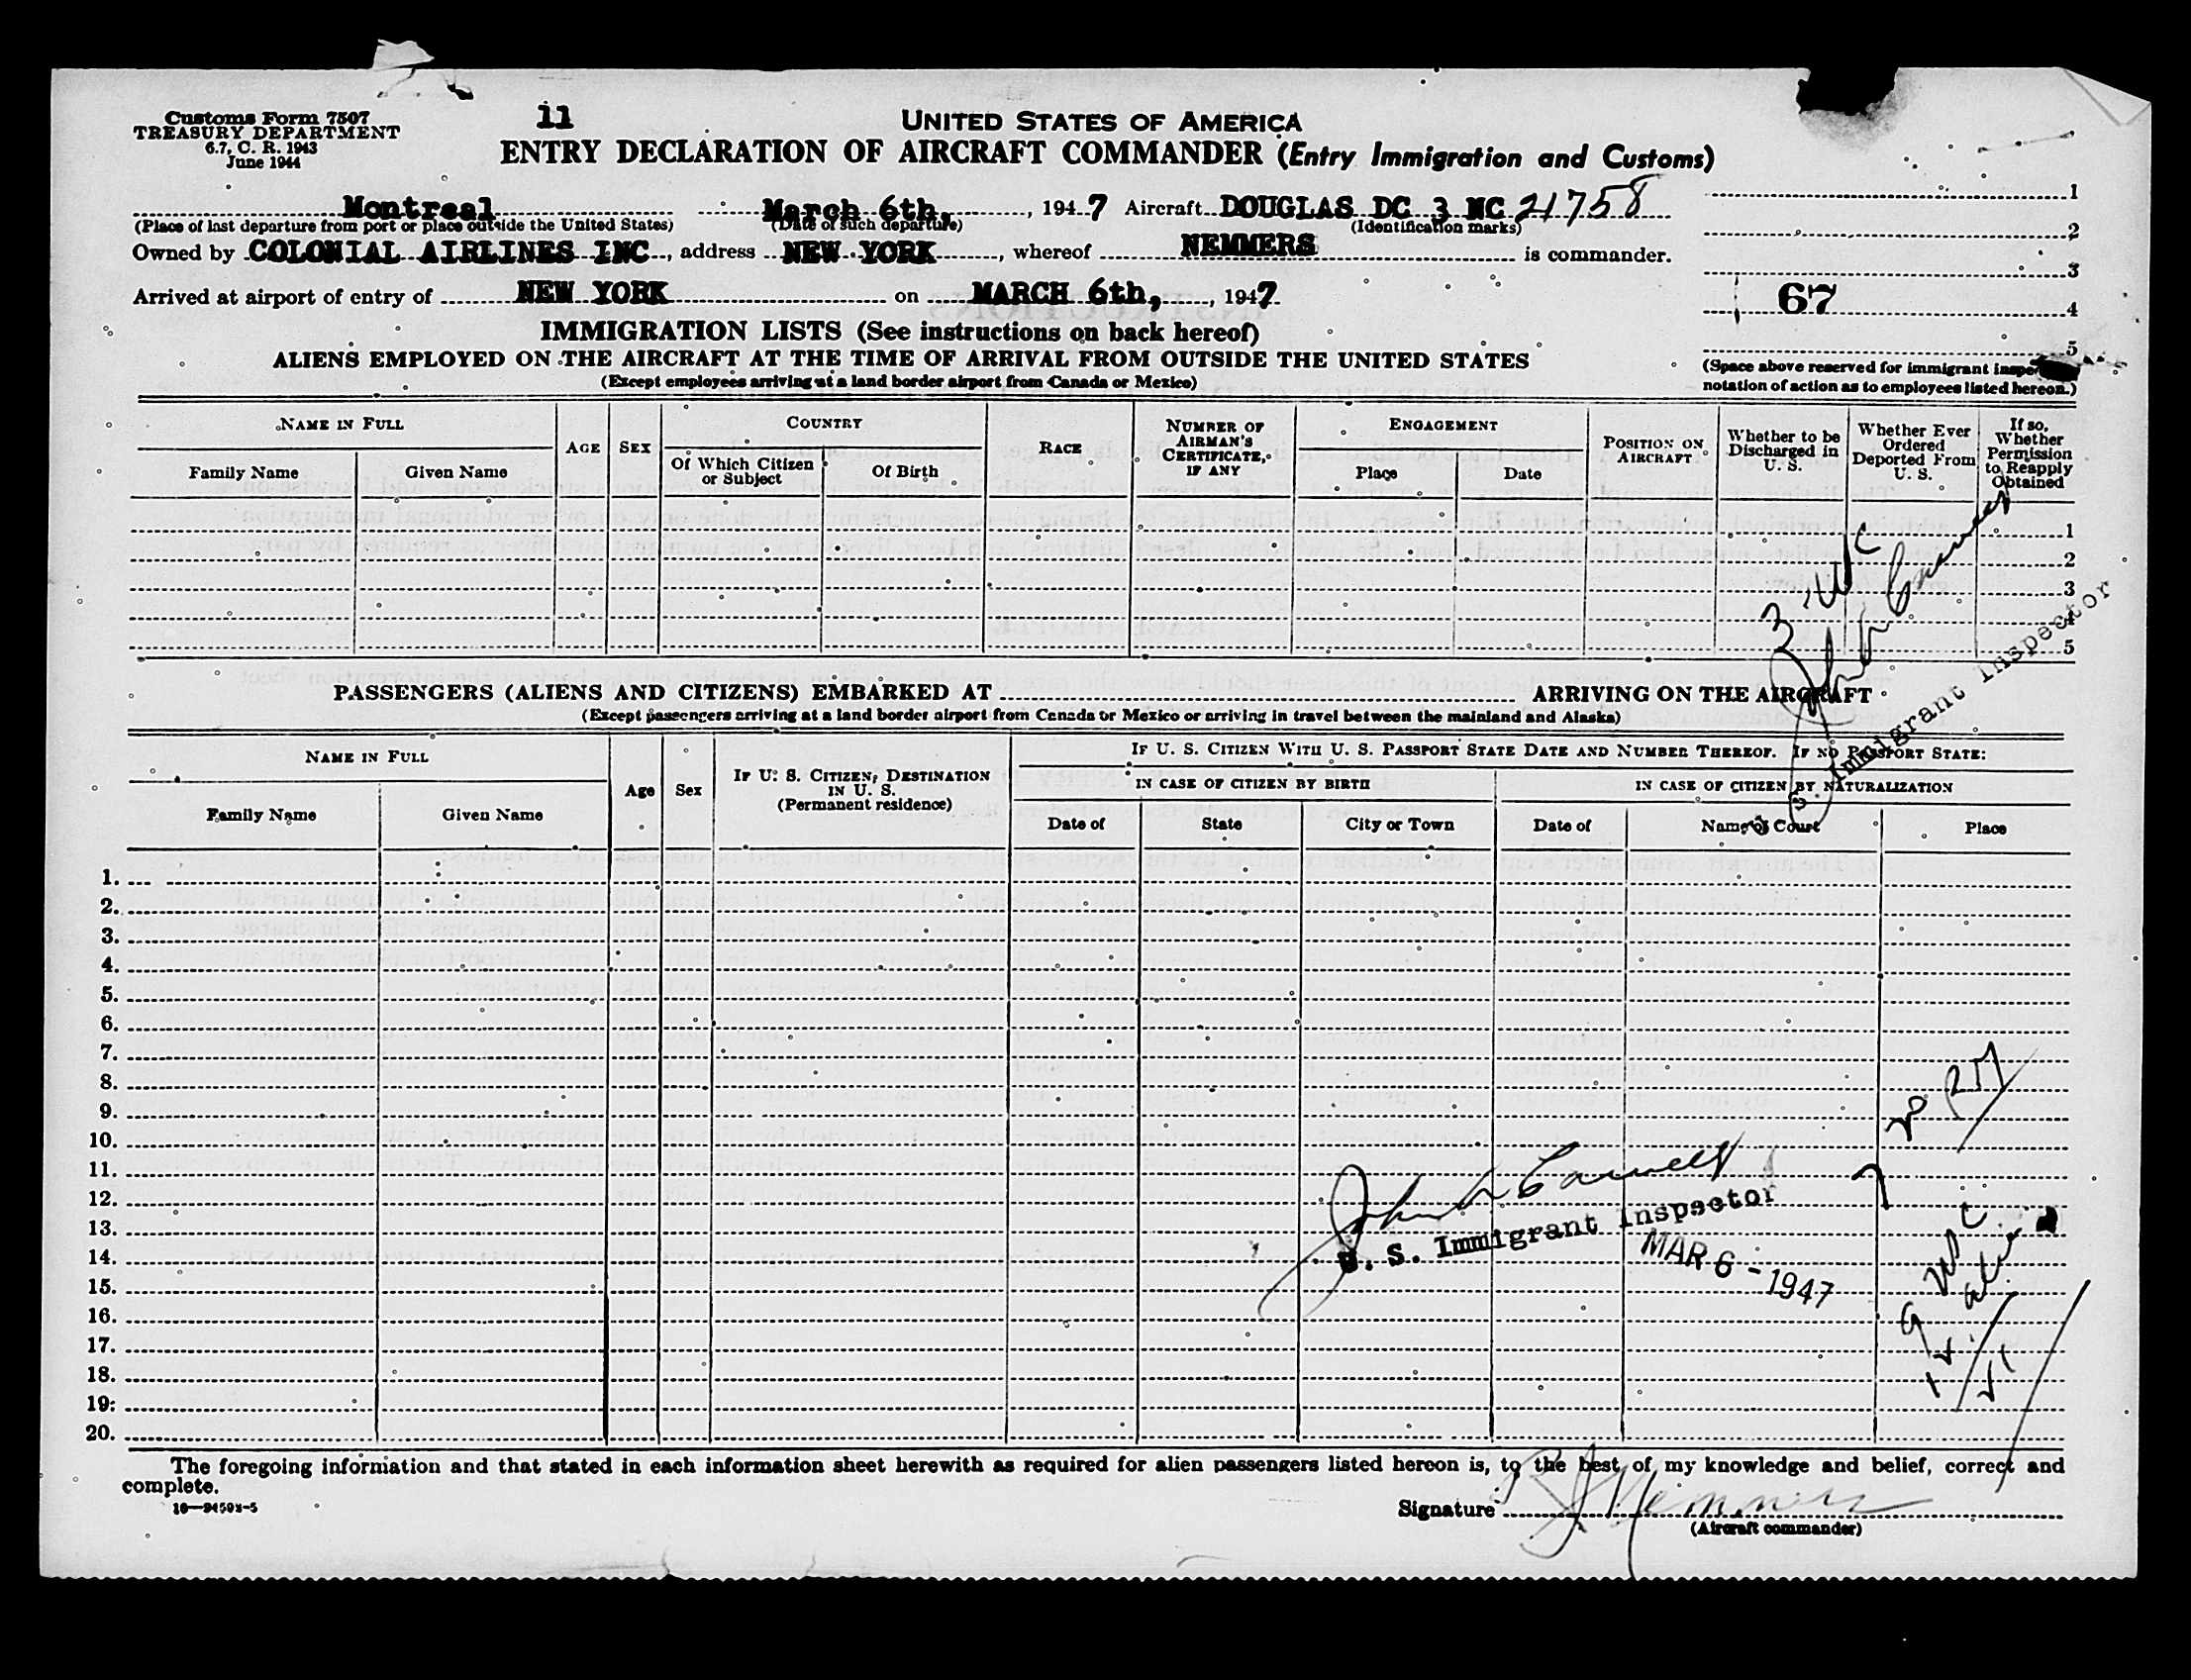 Customs Form 7507
TREASURY DEPARTMENT
6.7, C. R. 1943
June 1944
11
UNITED STATES OF AMERICA
ENTRY DECLARATION OF AIRCRAFT COMMANDER (Entry Immigration and Customs)
Montreal March 6th, , 1947 Aircraft DOUGLAS DC 3 NC 21758
(Place of last departure from port or place outside the United States) (Date of such departure) (Identification marks)
Owned by COLONIAL AIRLINES INC , address NEW YORK , whereof NEMMERS is commander.
Arrived at airport of entry of NEW YORK on MARCH 6th, , 1947
1
2
3
67 4
5
(Space above reserved for immigrant
notation of action as to employees listed hereon.)
IMMIGRATION LISTS (See instructions on back hereof)
ALIENS EMPLOYED ON THE AIRCRAFT AT THE TIME OF ARRIVAL FROM OUTSIDE THE UNITED STATES
(Except employees arriving at a land border airport from Canada or Mexico)
NAME IN FULL
Family Name
Given Name
AGE
SEX
COUNTRY
Of Which Citizen or Subject
Of Birth
RACE
NUMBER OF AIRMAN'S CERTIFICATE, IF ANY
ENGAGEMENT
Place
Date
POSITION ON AIRCRAFT
Whether to be Discharged in U. S.
Whether Ever Ordered Deported From U. S.
If so, Whether Permission to Reapply Obtained
1
2
3
4
5
3 USC
U. S. Immigrant Inspector
PASSENGERS (ALIENS AND CITIZENS) EMBARKED AT ARRIVING ON THE AIRCRAFT
(Except passengers arriving at a land border airport from Canada or Mexico or arriving in travel between the mainland and Alaska)
NAME IN FULL
Family Name
Given Name
Age
Sex
IF U. S. CITIZEN, DESTINATION IN U. S.
(Permanent residence)
IF U. S. CITIZEN WITH U. S. PASSPORT STATE DATE AND NUMBER THEREOF. IF NO PASSPORT STATE:
IN CASE OF CITIZEN BY BIRTH
IN CASE OF CITIZEN BY NATURALIZATION
Date of
State
City or Town
Date of
Name of Court
Place
1.
2.
3.
4.
5.
6.
7.
8.
9.
10.
11.
12.
13.
14.
15.
16.
17.
18.
19.
20.
John
U. S. Immigrant Inspector
MAR 6 - 1947
9 USC
12
21
The foregoing information and that stated in each information sheet herewith as required for alien passengers listed hereon is, to the best of my knowledge and belief, correct and
complete.
Signature Nemmers
(Aircraft commander)